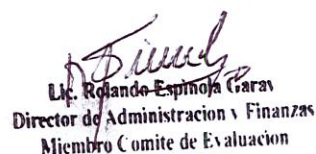 Lic. Rolando Espinola Garay
Director de Administracion y Finanzas
Miembro Comite de Evaluacion